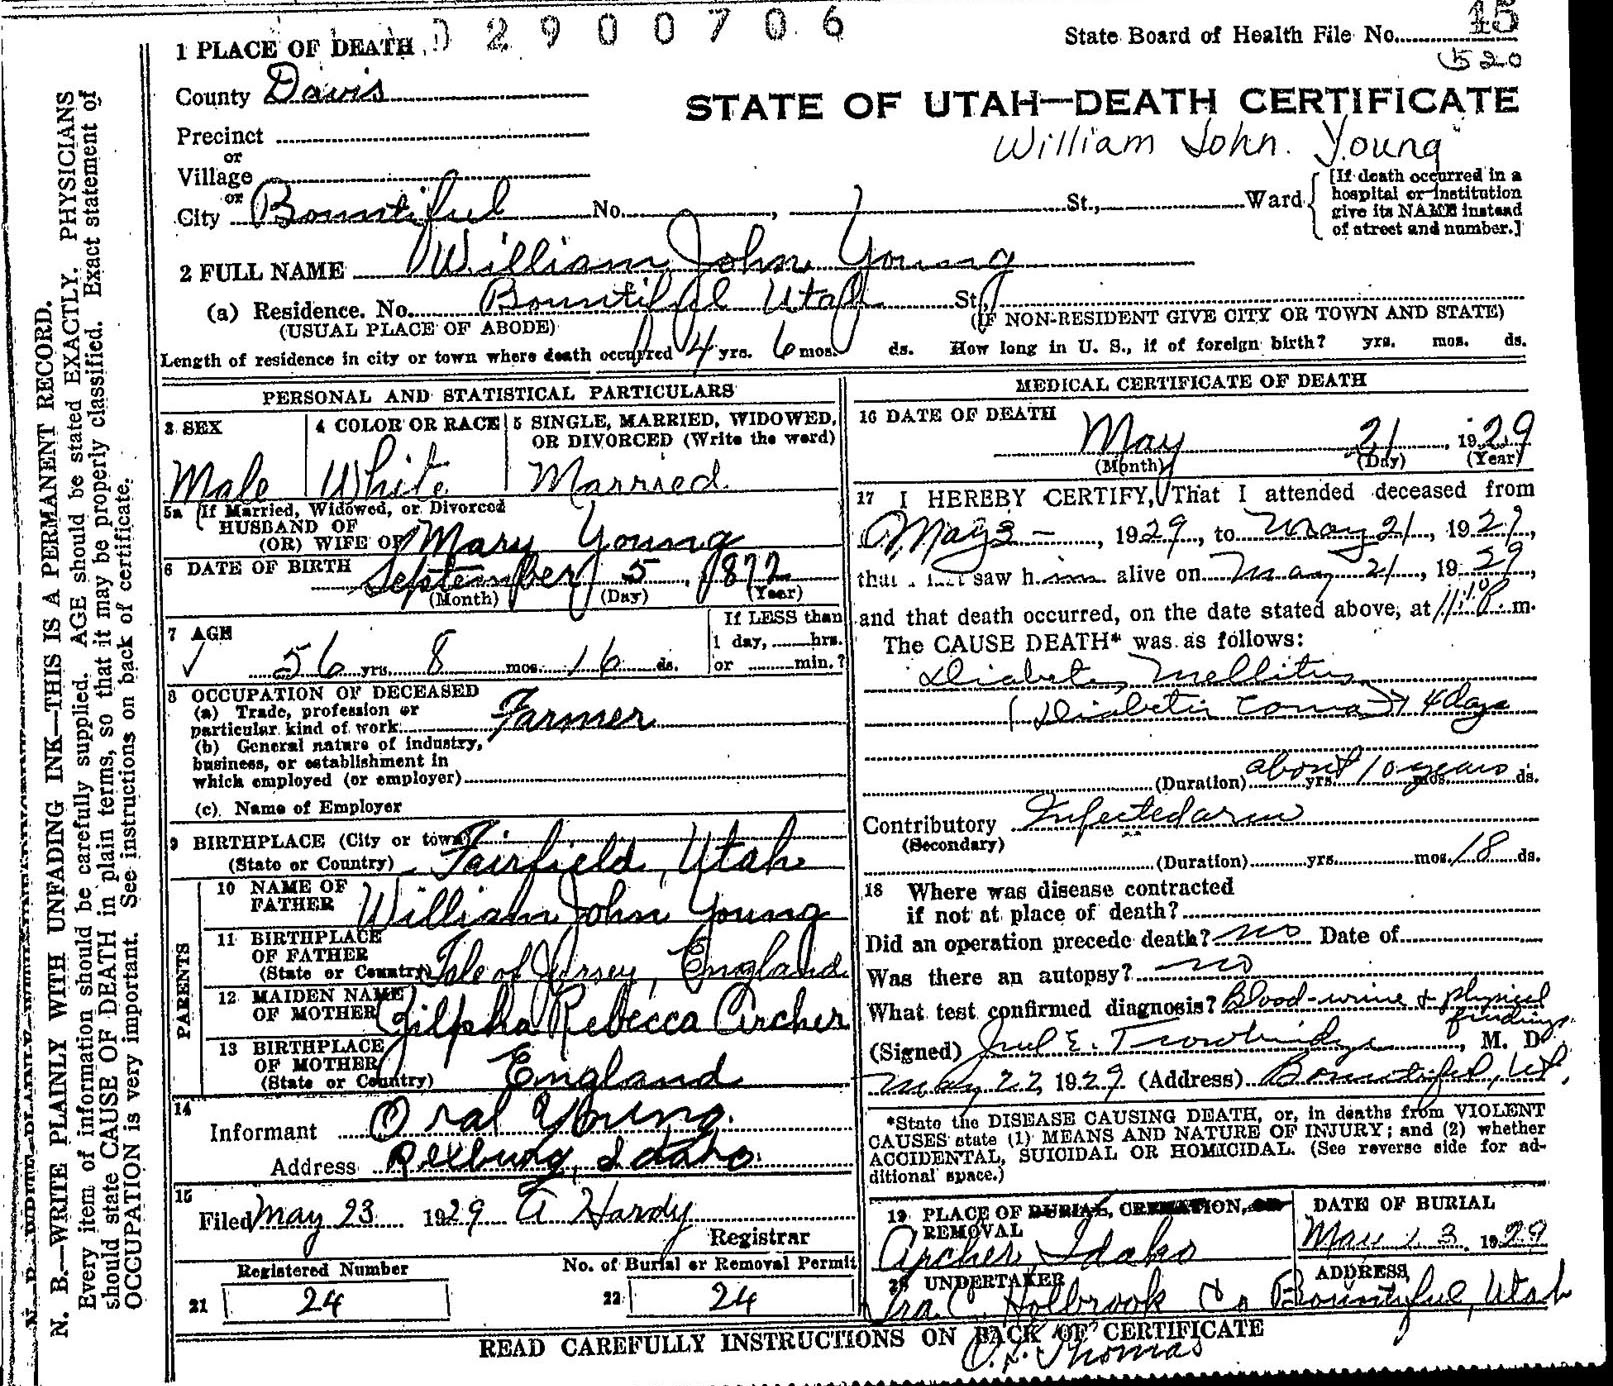 2900706
State Board of Health File No. 15
520
1 PLACE OF DEATH
County Davis
STATE OF UTAH—DEATH CERTIFICATE
William John Young
Precinct
or
Village
or
City Bountiful No. , St., Ward
[If death occurred in a
hospital or institution
give its NAME instead
of street and number.]
2 FULL NAME William John Young
(a) Residence. No. Bountiful Utah St.
(USUAL PLACE OF ABODE) (IF NON-RESIDENT GIVE CITY OR TOWN AND STATE)
Length of residence in city or town where death occurred 4 yrs. 6 mos. ds. How long in U. S., if of foreign birth? yrs. mos. ds.
PERSONAL AND STATISTICAL PARTICULARS
3 SEX
Male
4 COLOR OR RACE
White
5 SINGLE, MARRIED, WIDOWED,
OR DIVORCED (Write the word)
Married
5a If Married, Widowed, or Divorced
HUSBAND OF
(OR) WIFE OF Mary Young
6 DATE OF BIRTH September 5, 1872
(Month) (Day) (Year)
7 AGE
56 yrs. 8 mos. 16 ds.
If LESS than
1 day, hrs.
or min.?
8 OCCUPATION OF DECEASED
(a) Trade, profession or
particular kind of work Farmer
(b) General nature of industry,
business, or establishment in
which employed (or employer)
(c) Name of Employer
9 BIRTHPLACE (City or town)
(State or Country) Fairfield, Utah
PARENTS
10 NAME OF
FATHER William John Young
11 BIRTHPLACE
OF FATHER
(State or Country) Isle of Jersey, England
12 MAIDEN NAME
OF MOTHER Zilpha Rebecca Archer
13 BIRTHPLACE
OF MOTHER
(State or Country) England
14
Informant Oral Young
Address Rexburg, Idaho
15
Filed May 23 1929 A Hardy
Registrar
Registered Number
21 24
No. of Burial or Removal Permit
22 24
MEDICAL CERTIFICATE OF DEATH
16 DATE OF DEATH
May 21, 1929
(Month) (Day) (Year)
17 I HEREBY CERTIFY, That I attended deceased from
May 3 - , 1929, to May 21, 1929,
that I last saw him alive on May 21, 1929,
and that death occurred, on the date stated above, at m.
The CAUSE DEATH* was as follows:
Diabetes Mellitus
(Diabetic Coma) 4 days
(Duration) about 10 years yrs. mos. ds.
Contributory Infected arm
(Secondary)
(Duration) yrs. mos. 18 ds.
18 Where was disease contracted
if not at place of death?
Did an operation precede death? no Date of
Was there an autopsy? no
What test confirmed diagnosis? Blood-urine + physical
findings
(Signed) E. Trowbridge, M. D.
May 22, 1929 (Address) Bountiful, Ut.
*State the DISEASE CAUSING DEATH, or, in deaths from VIOLENT
CAUSES state (1) MEANS AND NATURE OF INJURY; and (2) whether
ACCIDENTAL, SUICIDAL OR HOMICIDAL. (See reverse side for ad-
ditional space.)
19 PLACE OF BURIAL, CREMATION, OR
REMOVAL
Archer, Idaho
DATE OF BURIAL
May 3, 1929
20 UNDERTAKER
Ira C. Holbrook Co
ADDRESS
Bountiful, Utah
READ CAREFULLY INSTRUCTIONS ON BACK OF CERTIFICATE
Thomas
N. B.—WRITE PLAINLY WITH UNFADING INK—THIS IS A PERMANENT RECORD.
Every item of information should be carefully supplied. AGE should be stated EXACTLY. PHYSICIANS
should state CAUSE OF DEATH in plain terms, so that it may be properly classified. Exact statement of
OCCUPATION is very important. See instructions on back of certificate.